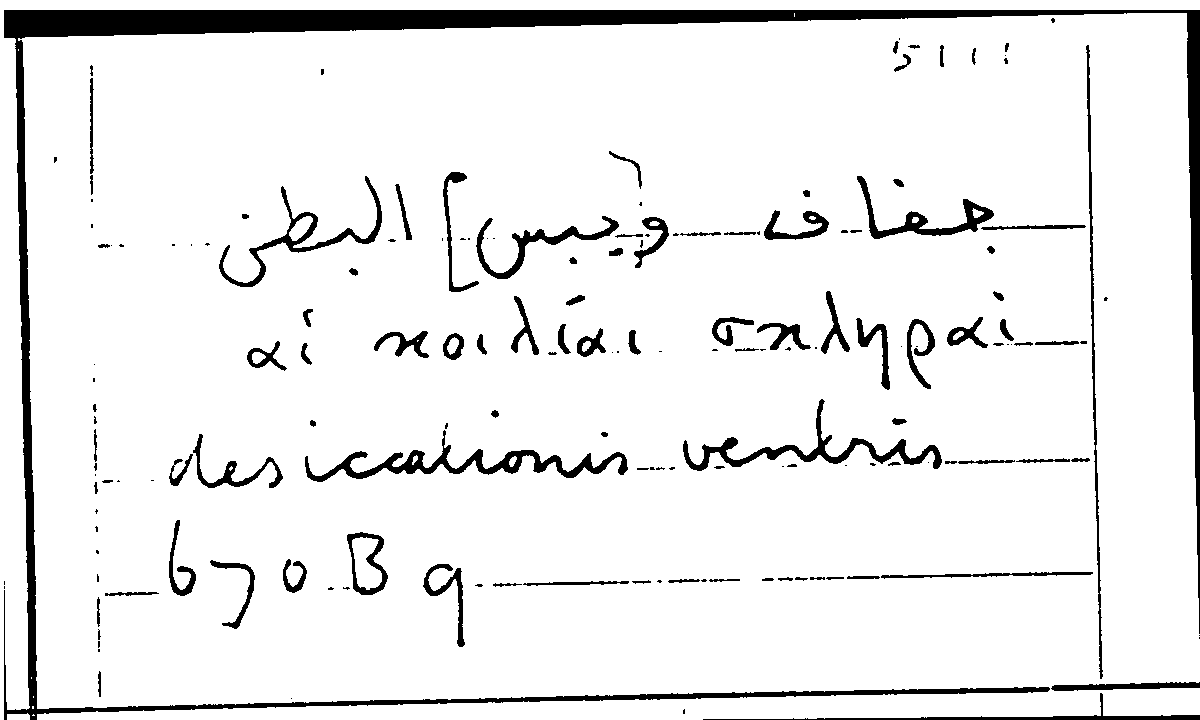 5111
جفاف [ويبس] البطن
αἱ κοιλίαι σκληραί
desiccationis ventris
670 B 9